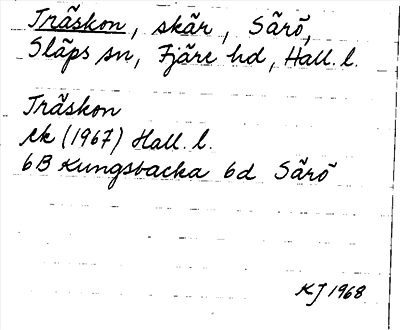 Träskon, skär, Särö,
Släps sn, Fjäre hd, Hall. l.
Träskon
ek (1967) Hall. l.
6B Kungsbacka 6d Särö
KJ 1968